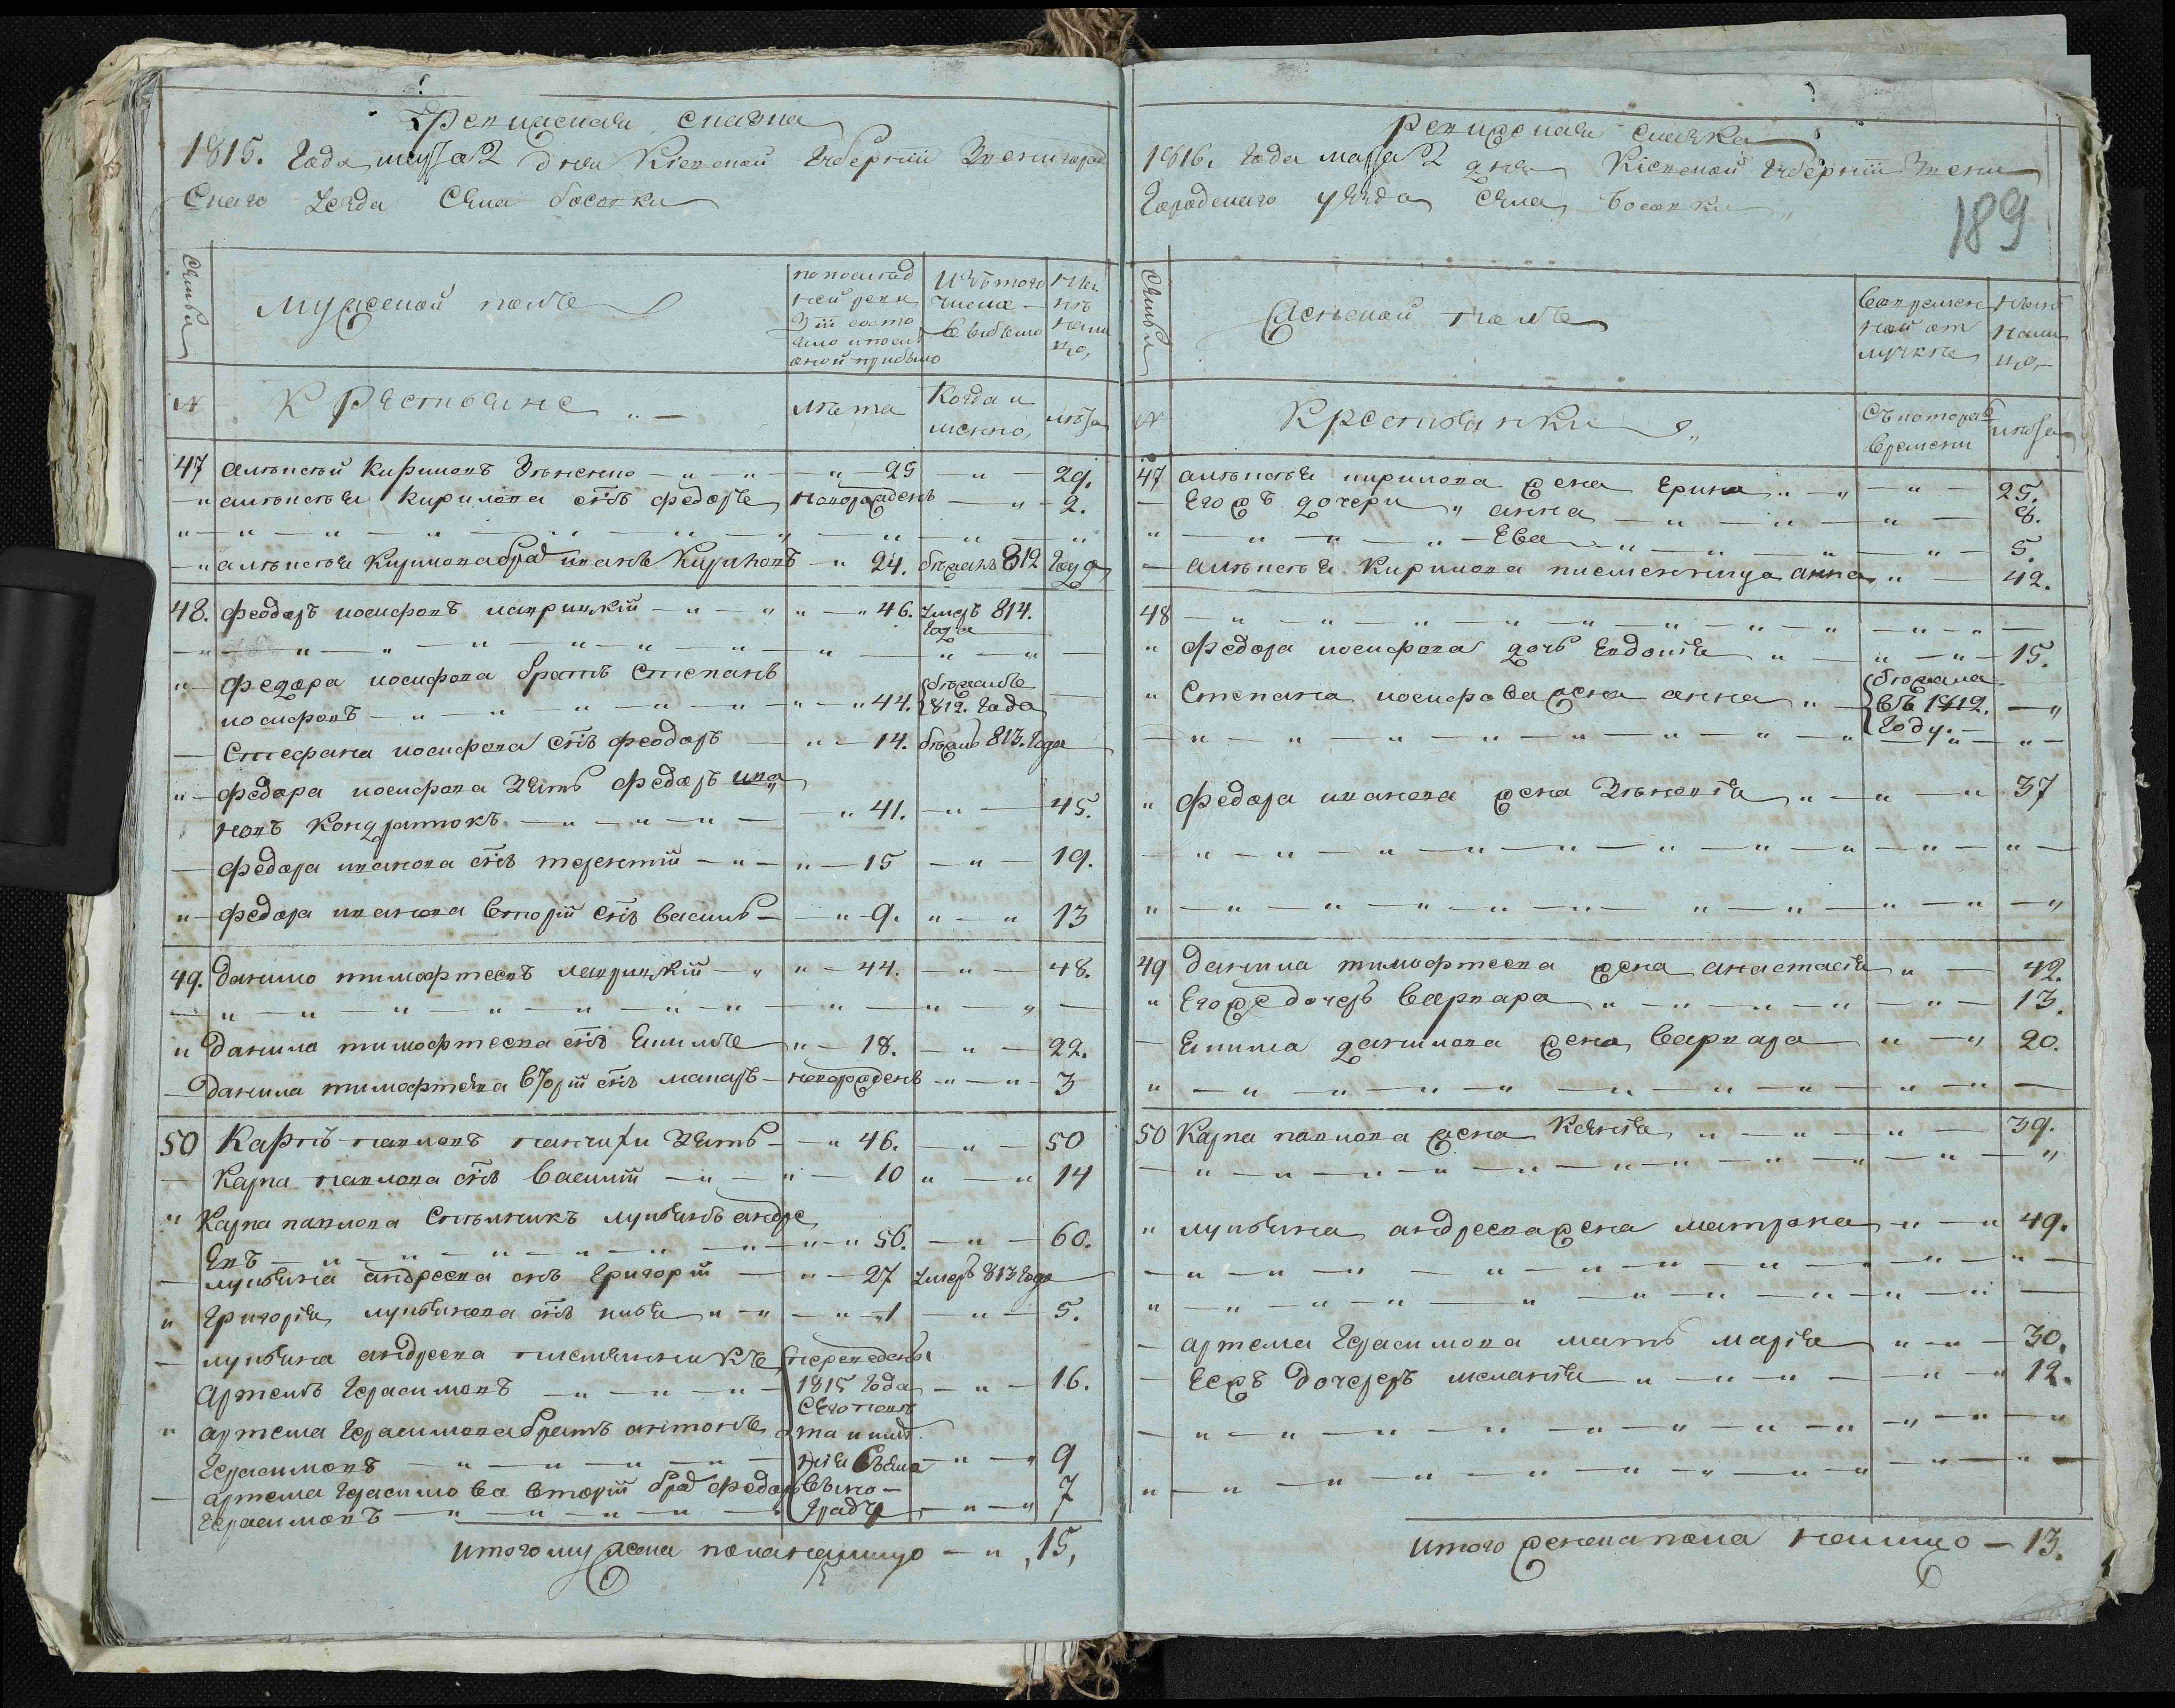 Ревижская сказка
1815. Года марта 2 дня Кіевской Губерніи Звенигород
Скаго уезда Села босовки
Семьи
мужской полъ
по послед
ней реви
зіи состо
яло и после
оной прибыло
Изъ того
числа
выбыло
Ны
нѣ
нали
цо,
№
Крестьяне
лѣта
Когда и
менно,
лѣта
47 алѣксѣй Кириловъ Зѣненко 25 29.
алѣксѣя Кирилова снъ федоръ новорожденъ 2.
алѣксѣя Кирилова брад иванъ Кириловъ 24. бѣжалъ 812 году
48. феодоръ иосифовъ лавринѣкій 46. умеръ 814.
года
федора иосифова братъ Степанъ
иосифовъ 44. бѣжалъ 812. года
Стефана иосифова снъ феодоръ 14. бѣжалъ 813. года
федора иосифова зять федоръ ива
новъ Кондратюкъ 41. 45.
федора иванова снъ терентій 15 19.
федора иванова вторій снъ василь 9. 13
49. данило тимофтеевъ лавринѣкій 44. 48.
данила тимофтеева снъ Якимъ 18. 22.
данила тимофтеева вторій снъ макаръ новорожденъ 3
50 Карпъ павловъ зять 46. 50
Карпа павлова снъ василій 10 14
Карпа павлова лукьянъ андре
евъ 56. 60.
лукьяна андреева снъ григорій 27 умеръ 813 года
григорія лукьянова снъ илья 1 5.
лукьяна андреева племянникъ переведены
артемъ герасимовъ 1815 года 16.
артема герасимова братъ антонъ
герасимовъ села 9
артема герасимова вторій брад федоръ
герасимовъ граду 7
итого мужеска пола налицо 15,
Ревижская сказка
1816. Года марта 2 дня Кіевской Губерніи Звени
Городскаго уезда Села Босовки
189
Семьи
Женской полъ
Во времен
ной от
лучкѣ
Нынѣ
нали
цо,
№
Крестьянки
Съ котораго
времени
лѣта
47 алѣксѣя кирилова жена Ерина 25.
Его жъ дочери анна 8.
Ева 5.
алѣксѣя Кирилова племенница анна 12.
48
Федора иосифова дочь Евдокія 15.
Степана иосифова жена анна бѣжала
въ 1812.
году.
федора иванова жена Зѣновія 37
49 данила тимофтеева жена анастасія 42.
Его же дочеръ варвара 13.
Якима данилова жена варвара 20.
50 Карпа павлова жена Ксенія 39.
лукьяна андреева жена матрона 49.
артема герасимова мать марія 30.
Ее жъ дочеръ меланія 12.
итого женска пола налицо 13.